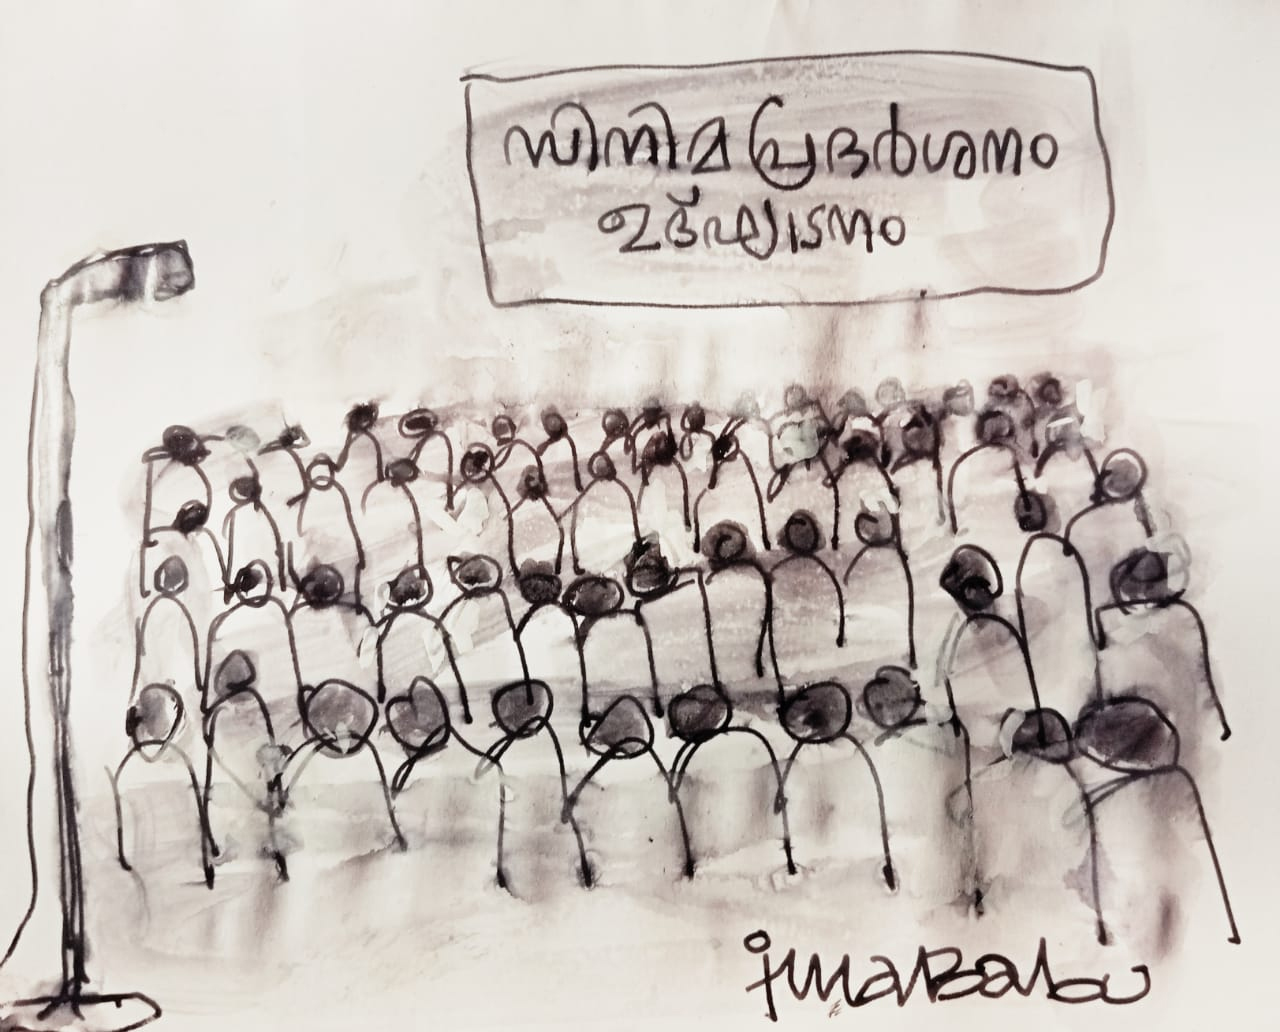 സിനിമ പ്രദർശനം
ഉദ്ഘാടനം
imaBabu